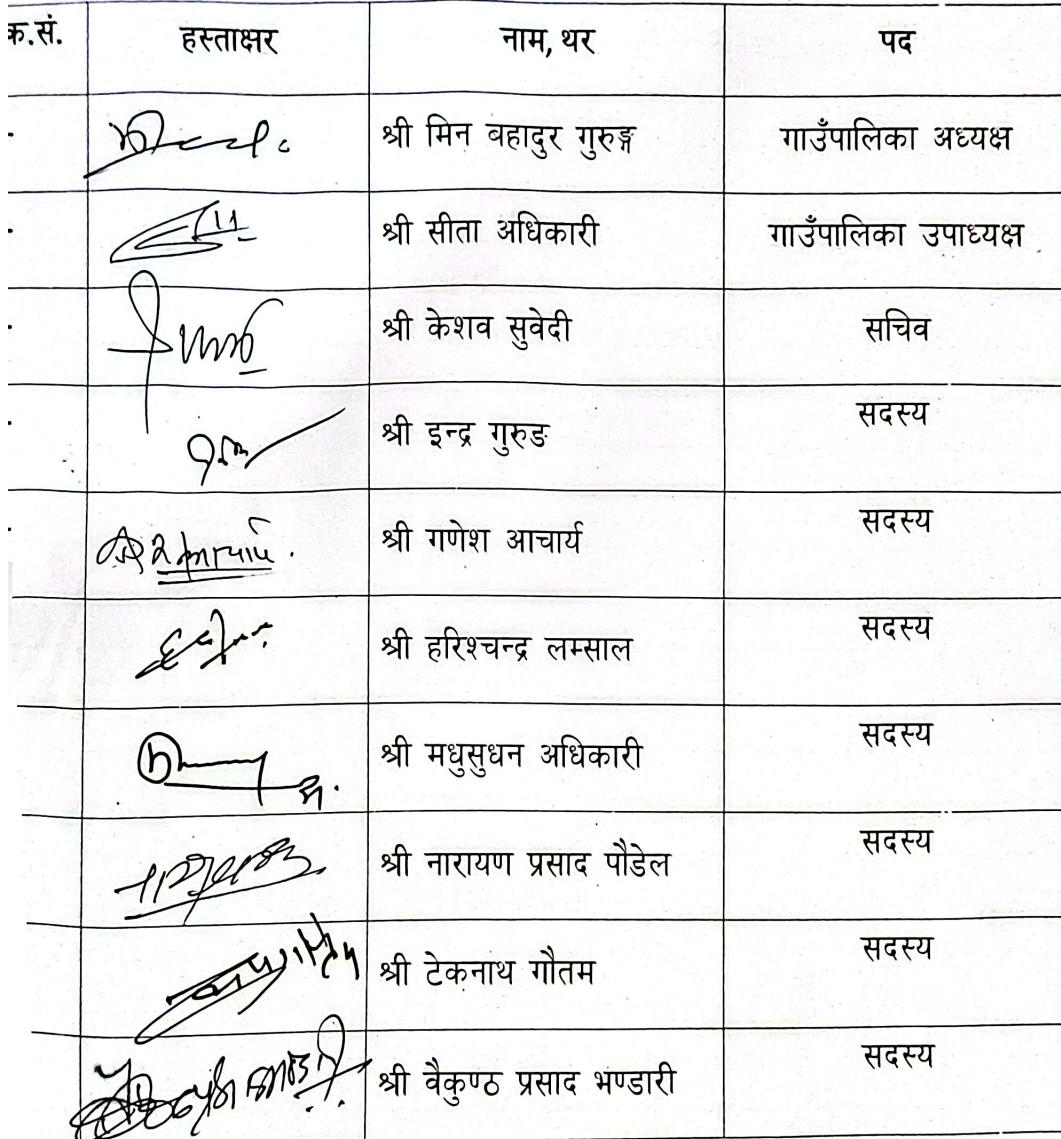 क.सं. हस्ताक्षर नाम, थर पद
श्री मिन बहादुर गुरुङ्ग गाउँपालिका अध्यक्ष
श्री सीता अधिकारी गाउँपालिका उपाध्यक्ष
श्री केशव सुवेदी सचिव
श्री इन्द्र गुरुङ सदस्य
श्री गणेश आचार्य सदस्य
श्री हरिश्चन्द्र लम्साल सदस्य
श्री मधुसुधन अधिकारी सदस्य
श्री नारायण प्रसाद पौडेल सदस्य
श्री टेकनाथ गौतम सदस्य
श्री वैकुण्ठ प्रसाद भण्डारी सदस्य